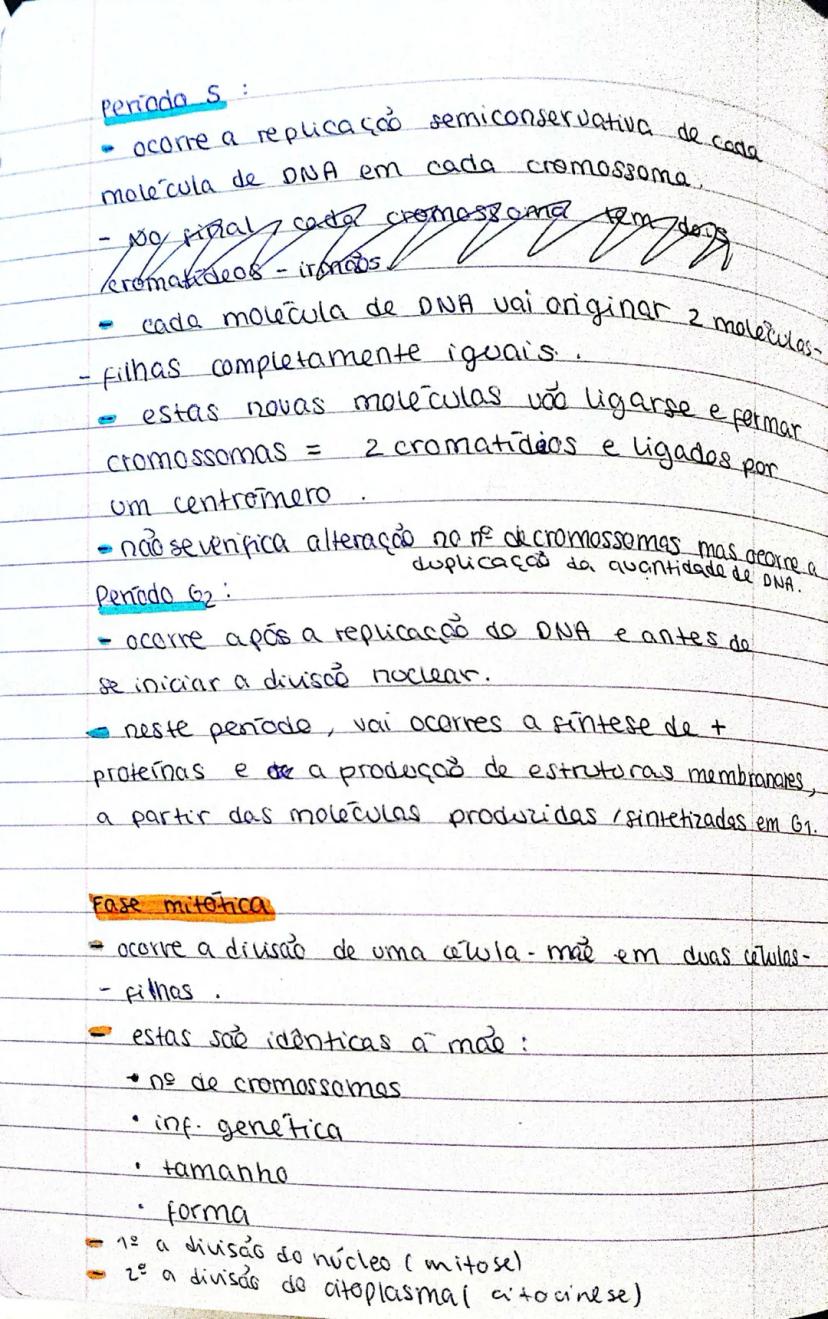 Período S :
- ocorre a replicação semiconservativa de cada
molécula de DNA em cada cromossoma.
- No final, cada cromossoma tem dois
cromatídeos - irmãos.
- cada molécula de DNA vai originar 2 moléculas-
- filhas completamente iguais. .
- estas novas moléculas vão ligarse e formar
cromossomas = 2 cromatídeos e ligados por
um centrómero .
- não se verifica alteração no nº de cromossomas mas ocorre a
duplicação da quantidade de DNA.
Período G2 :
- ocorre após a replicação do DNA e antes de
se iniciar a divisão nuclear.
- neste período, vai ocorres a síntese de +
proteínas e a produção de estruturas membranares,
a partir das moléculas produzidas / sintetizadas em G1.
Fase mitótica
- ocorre a divisão de uma célula - mãe em duas células-
- filhas .
- estas são idênticas á mãe :
• nº de cromossomas
• inf. genética
• tamanho
• forma
- 1º a divisão do núcleo ( mitose)
- 2º a divisão do citoplasma ( citocinese)